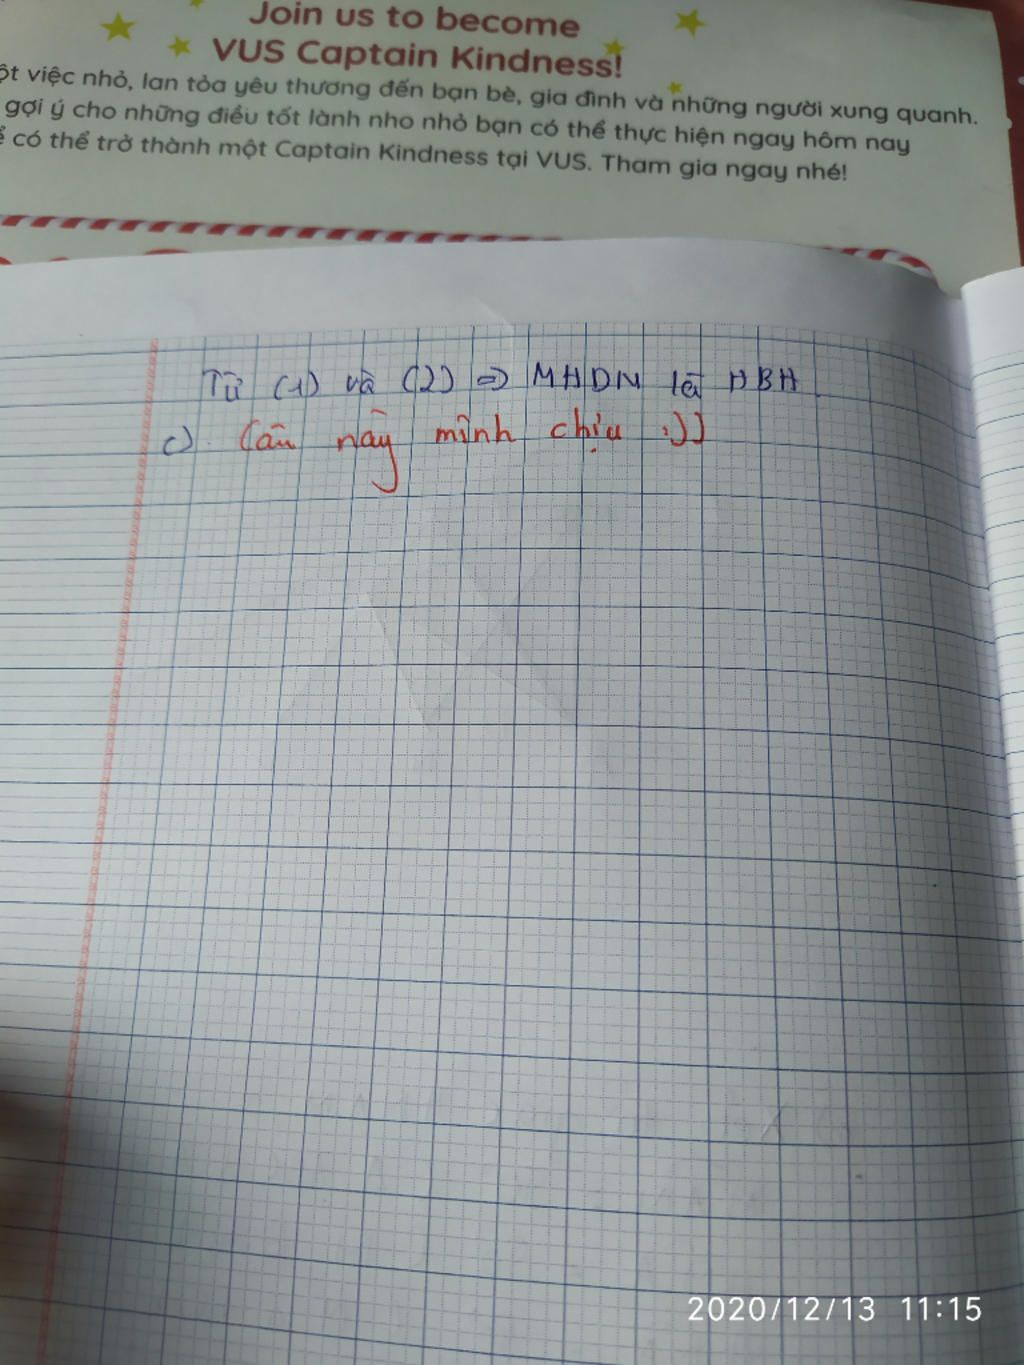 Join us to become
VUS Captain Kindness!
ột việc nhỏ, lan tỏa yêu thương đến bạn bè, gia đình và những người xung quanh.
gợi ý cho những điều tốt lành nho nhỏ bạn có thể thực hiện ngay hôm nay
ể có thể trở thành một Captain Kindness tại VUS. Tham gia ngay nhé!
Từ (1) và (2) => MHDN là HBH
c) Câu này mình chịu :))
2020/12/13 11:15